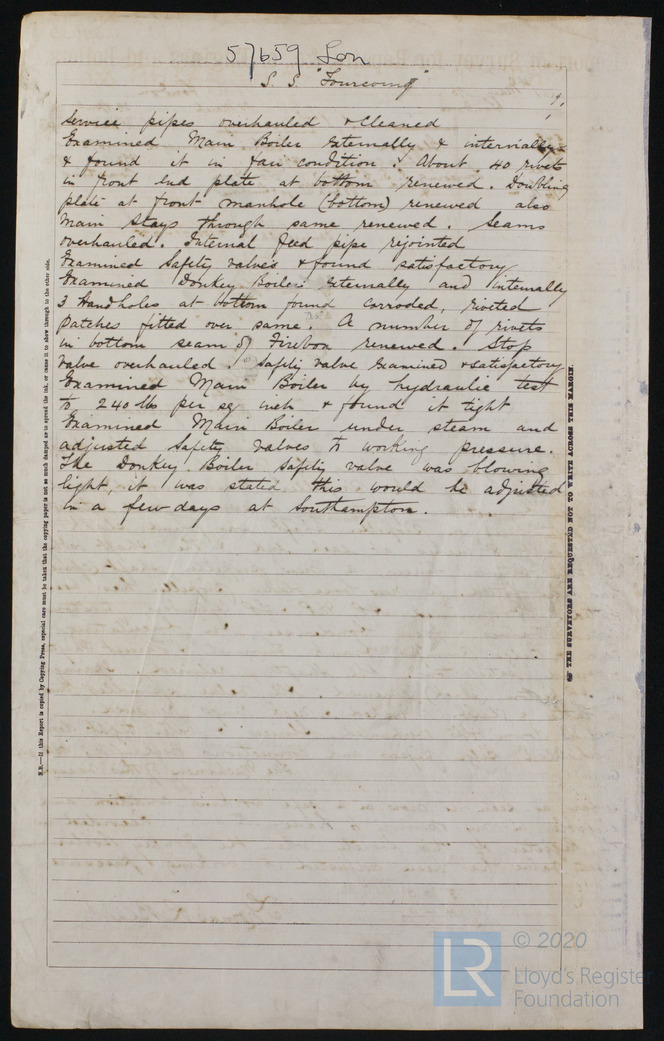 57659 Lon
S. S. "Fourcoing"
Service pipes overhauled & cleaned
Examined Main Boiler externally & internally
& found it in fair condition. About 40 rivets
in front end plate at bottom renewed. Doubling
plate at front manhole (bottom) renewed also
Main Stays through same renewed. Seams
overhauled. Internal feed pipe rejointed
Examined Safety valves & found satisfactory
Examined Donkey Boiler externally and internally
3 Handholes at bottom found corroded, riveted
patches fitted over same. A number of rivets
in bottom seam of Firebox renewed. Stop
valve overhauled. Safety valve examined & satisfactory
Examined Main Boiler by hydraulic test
to 240 lbs per sq inch & found it tight
Examined Main Boiler under steam and
adjusted Safety valves to working pressure.
The Donkey Boiler Safety valve was blowing
light, it was stated this would be adjusted
in a few days at Southampton.
N.B.—If this Report is copied by Copying Press, especial care must be taken that the copying paper is not so much damped as to spread the ink, or cause it to show through to the other side.
THE SURVEYORS ARE REQUESTED NOT TO WRITE ACROSS THIS MARGIN.
LR
© 2020
Lloyd's Register
Foundation